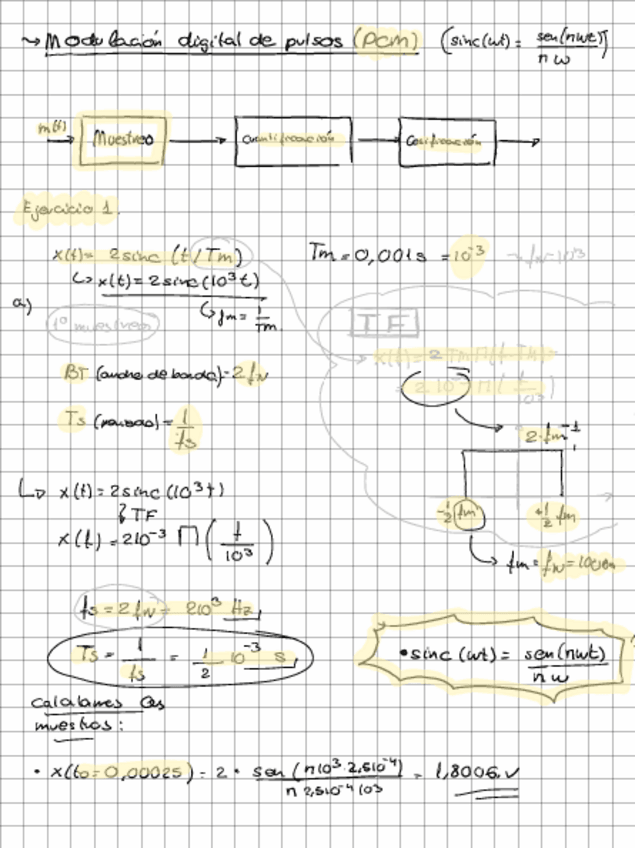 ~> Modulación digital de pulsos (PCM) (sinc(wt) = sen(πwt) / πw)
m(t) Muestreo Cuantificación Codificación
Ejercicio 1.
x(t) = 2sinc (t/Tm) Tm = 0,001s = 10^-3 → fm = 10^3
↳ x(t) = 2sinc(10^3 t)
↳ fm = 1/Tm.
a)
1º muestreo
TF
x(f) = 2 Tm Π(f·Tm)
= 2 10^-3 Π(f/10^3)
BT (ancho de banda) = 2fN
Ts (periodo) = 1/fs
2·fm^-1
-1/2 fm +1/2 fm
↳ x(t) = 2sinc(10^3 t)
↓ TF
x(f) = 2 10^-3 Π (f/10^3)
→ fm = fN =
fs = 2fN = 2 10^3 Hz
Ts = 1/fs = 1/2 10^-3 s
• sinc (wt) = sen(πwt) / πw
calculamos las
muestras:
• x(t0 = 0,00025) = 2 · sen (π 10^3 · 2,5 10^-4) / π 2,5 10^-4 10^3 = 1,8006 v